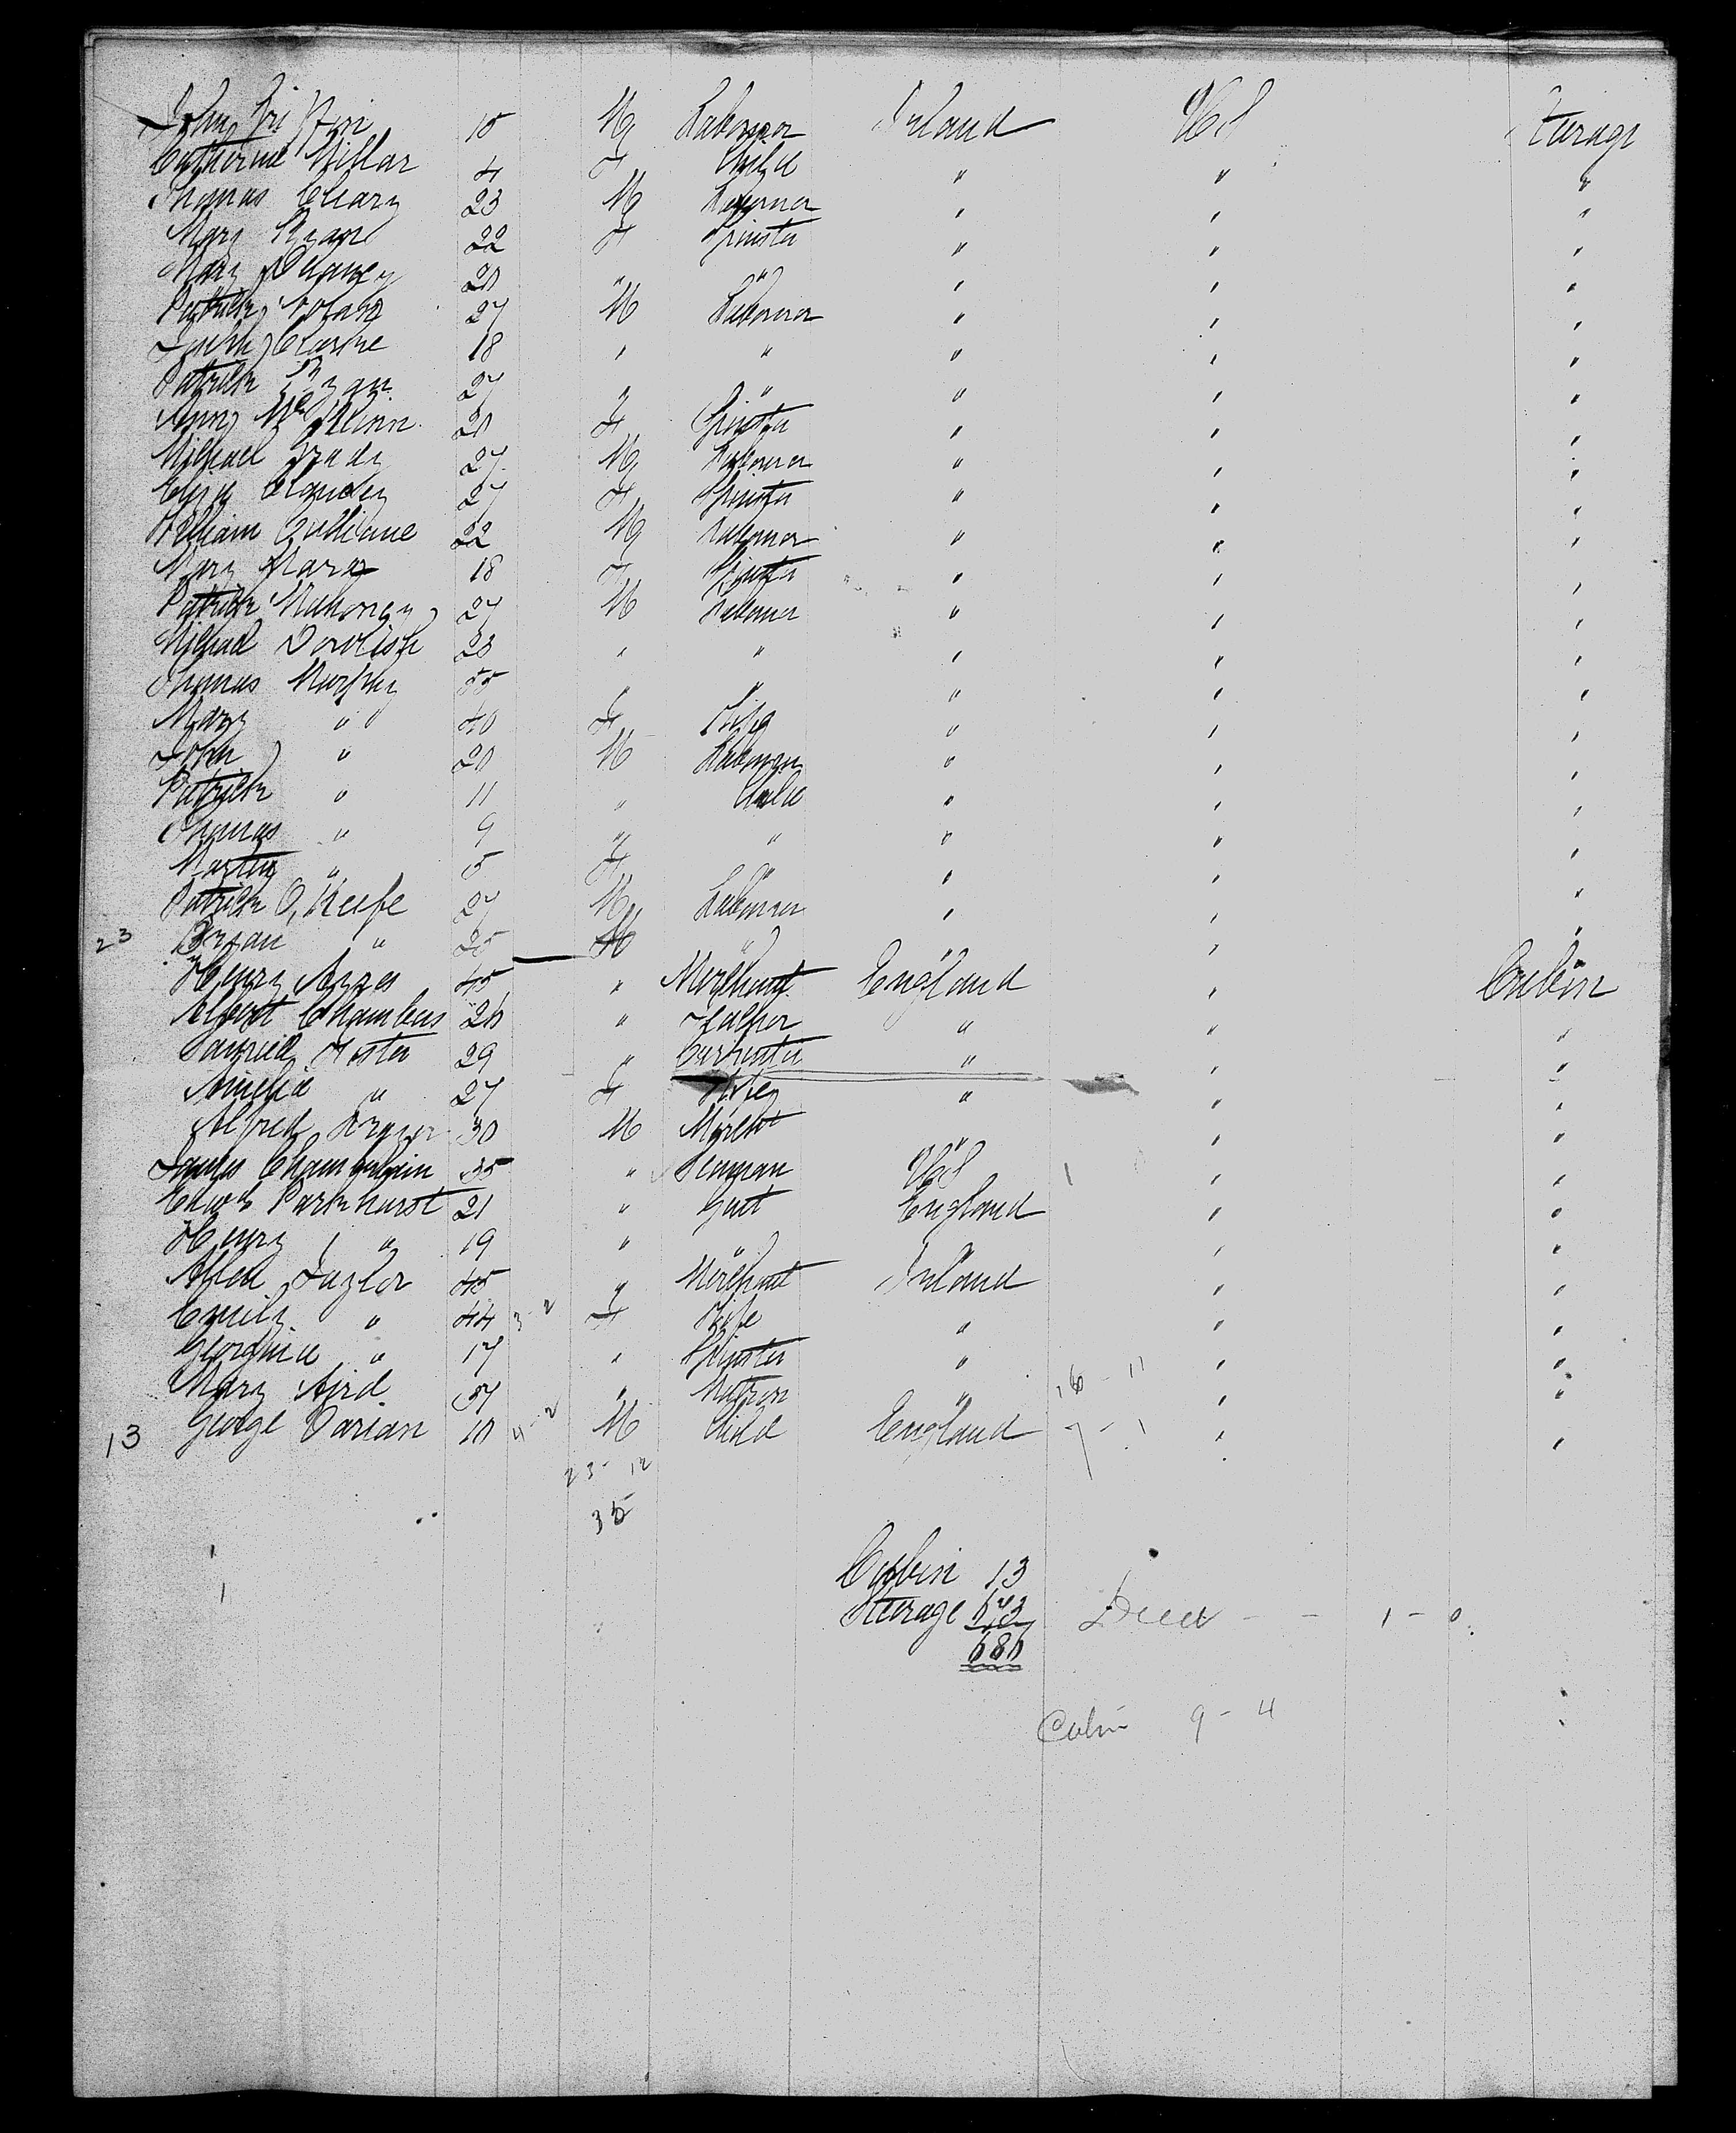 John Griffin 15 M Laborer Ireland US Steerage
Catherine Millar 4 F Child " " "
Thomas Cleary 23 M Laborer " " "
Mary Ryan 22 F Spinster " " "
Mary Delaney 20 " " " " "
Patrick Nolan 27 M Laborer " " "
Joseph Clarke 18 " " " " "
Patrick Ryan 27 " " " " "
Ann Mc 20 F Spinster " " "
Michael Grady 27 M Laborer " " "
Eliza 27 F Spinster " " "
William 22 M Laborer " " "
Mary 18 F Spinster " " "
Patrick Mahoney 27 M Laborer " " "
Michael 23 " " " " "
Thomas Murphy 55 " " " " "
Mary " 40 F Wife " " "
John " 20 M Laborer " " "
Patrick " 11 " Child " " "
Thomas " 9 " " " " "
" 5 F " " " "
Patrick O'Keefe 27 M Laborer " " "
23 Bryan " 25 M " " " "
Henry 45 " Merchant England " Cabin
Albert Chambers 26 " " " "
Foster 29 " Carpenter " " "
Amelia " 27 F Wife " " "
Alfred 30 M Mercht " " "
James Chamberlain 35 " Seaman US " "
Edwd Parkhurst 21 " Gent England " "
Henry " 19 " " " " "
Allen Taylor 45 " Merchant Ireland " "
Emily " 44 F Wife " " "
Georgina " 17 " Spinster " " "
Mary Aird 37 " Matron " 16 - 11 " "
13 George Darian 10 M Child England 7 - 1 " "
23 - 12
35
Cabin 13
Steerage 673 Died - - 1 - 0
686
Cabin 9 - 4